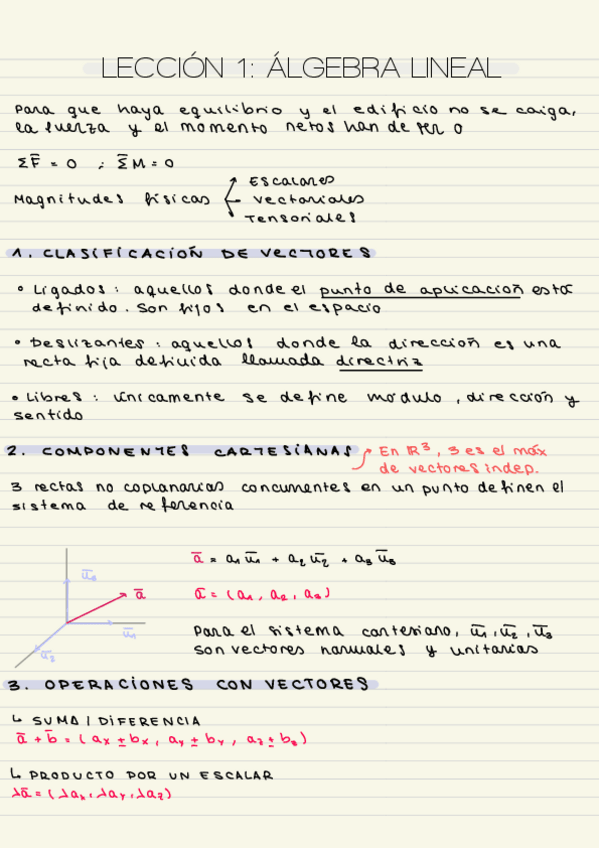 LECCIÓN 1: ÁLGEBRA LINEAL
Para que haya equilibrio y el edificio no se caiga,
la fuerza y el momento netos han de ser 0
ΣF̄ = 0 ; Σ̄M = 0
Escalares
Magnitudes físicas Vectoriales
Tensoriales
1. CLASIFICACIÓN DE VECTORES
• Ligados: aquellos donde el punto de aplicación está
definido. Son fijos en el espacio
• Deslizantes: aquellos donde la dirección es una
recta fija definida llamada directriz
• Libres: únicamente se define módulo, dirección y
sentido
2. COMPONENTES CARTESIANAS
En ℝ³, 3 es el máx
de vectores indep.
3 rectas no coplanarias concurrentes en un punto definen el
sistema de referencia
ū₃
ā
ū₁
ū₂
ā = a₁ū₁ + a₂ū₂ + a₃ū₃
ā = (a₁, a₂, a₃)
Para el sistema cartesiano, ū₁, ū₂, ū₃
son vectores normales y unitarios
3. OPERACIONES CON VECTORES
↳ SUMA / DIFERENCIA
ā + b̄ = (ax ± bx, ay ± by, az ± bz)
↳ PRODUCTO POR UN ESCALAR
λā = (λax, λay, λaz)